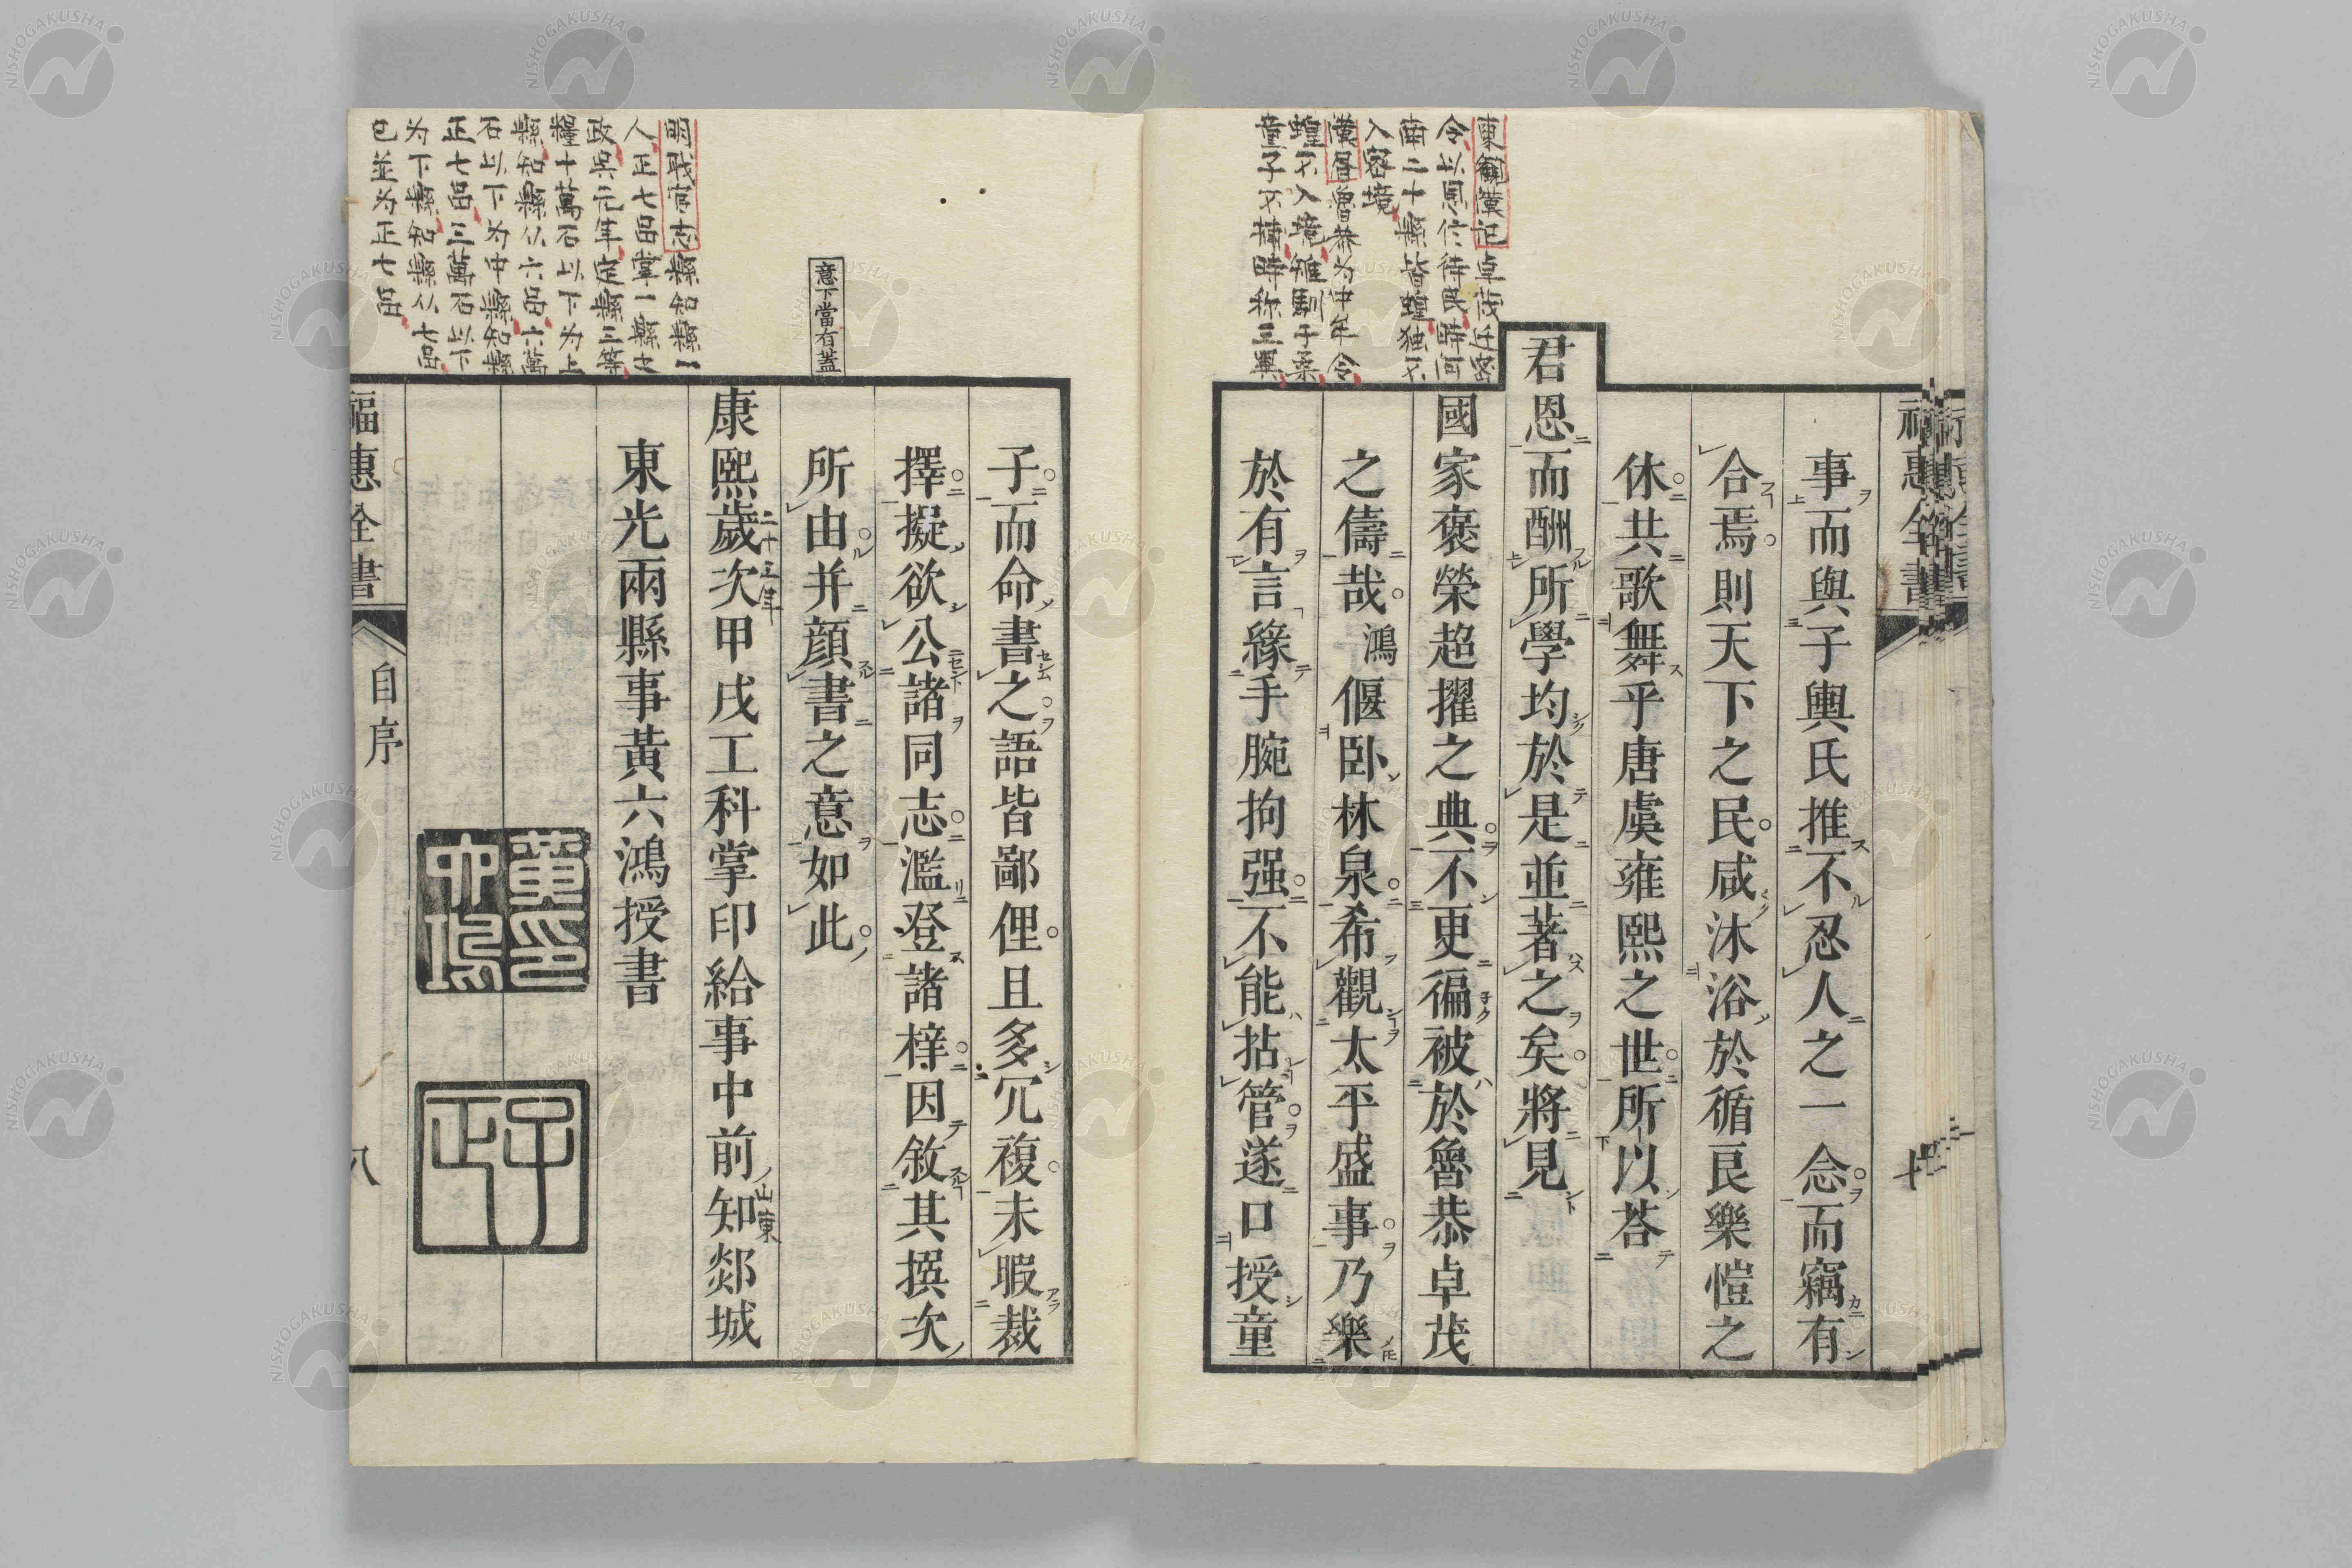 東觀漢記卓茂遷密
令以恩信待民時河
南二十縣皆蝗獨不
入密境
漢書魯恭为中牟令
蝗不入境雉馴于桑
童子不捕時称三異
事而與子輿氏推不忍人之一念而竊有
合焉則天下之民咸沐浴於循良樂愷之
休共歌舞乎唐虞雍熙之世所以荅
君恩而酬所學均於是並著之矣將見
國家褒榮超擢之典不更徧被於魯恭卓茂
之儔哉鴻偃卧林泉希觀太平盛事乃樂
於有言緣手腕拘强不能拈管遂口授童
明職官志縣知縣一
人正七品掌一縣之
政吳元年定縣三等
糧十萬石以下为上
縣知縣从六品六萬
石以下为中縣知縣
正七品三萬石以下
为下縣知縣从七品
已並为正七品
意下當有蓋
子而命書之語皆鄙俚且多冗複未暇裁
擇擬欲公諸同志濫登諸梓因敘其撰次
所由并顔書之意如此
康熙歲次甲戌工科掌印給事中前知郯城
二十三年
山東
東光兩縣事黃六鴻授書
黃六鴻印
子正
福惠全書
自序
八